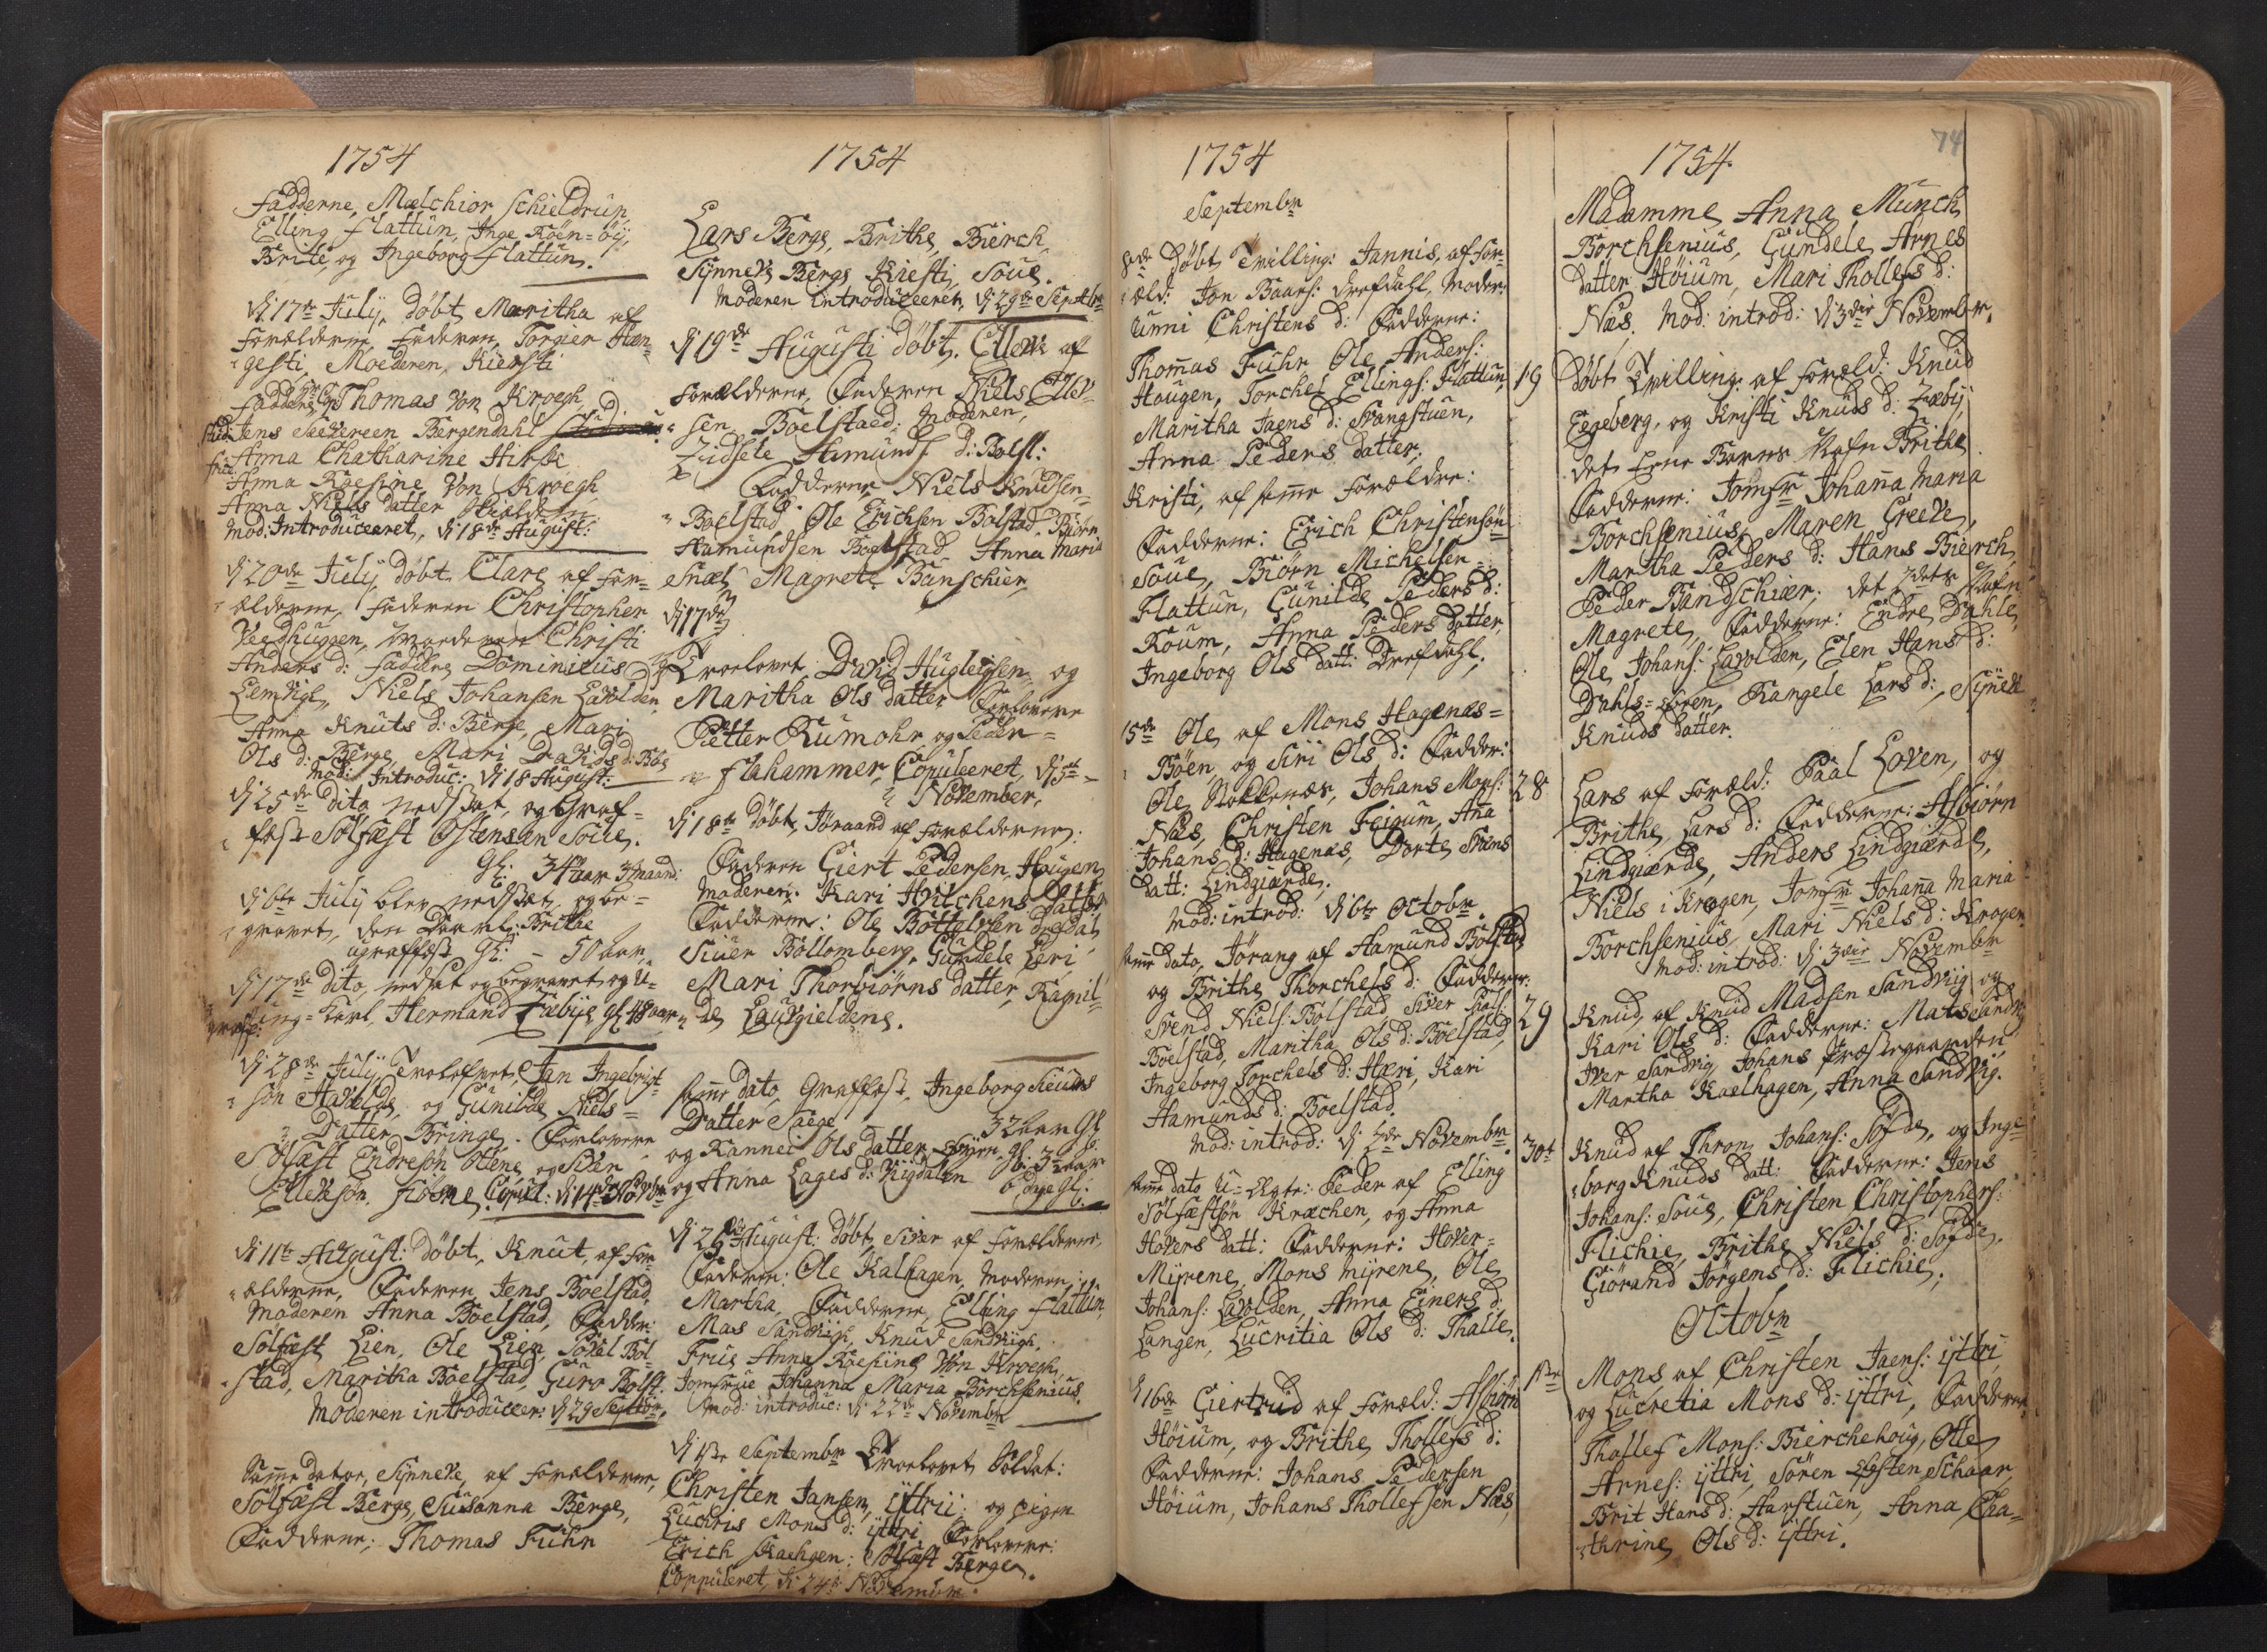 1754
Fadderne, Melchior Schieldrup,
Elling Flattun, Inge Röen=öy,
Brite og Ingeborg Flattun.
d: 17de July, döbt Maritha af
Forælderne, Faderen, Torgier Hæn=
gesti, Moederen, Kiersti
Faddere, Thomas Von Krogh
Stud: Jens Severeen Bergendahl
Anna Chatharine Hirsk
Frue Anna Roesine Von Krogh
Anna Niels datter
Mod: Introduceeret, d: 18de August:
d: 20de July, döbt Clare af For=
ælderne, Faderen Christopher
Vedhuggen, Moederen Christi
Anders d: Faddere Dominicus
Lemvigh, Niels Johansen Lavolden
Anna Knuts d: Berge, Mari
Ols d: Berge, Mari Davids d:
Mod: Introduc: d: 18 August:
d: 25de dito nedsat, og Graf=
fest Solfæst Ostensen Soue.
gl: 34 aar 3 maand:
d: 6te July blev nedsat, og be=
gravet, den Brithe
ugraffest gl: - 50 aar.
d: 17de dito, nedsat og begravet og
Karl, Hermand gl: 48 aar
d: 28de July, Trolofvet, Jan Ingebrigt=
sön Havelde, og Gunilde Niels=
Datter Bringe. Forlovere
Solfæst Endresön Otene og Siver
Ellensön, Copul: d: 14de Novbr
d: 11te August: döbt, Knut, af For=
ælderne, Faderen Jens Boelstad,
Moderen Anna Boelstad, Fadder:
Solfæst Lien, Ole Lien, Povel Bol=
stad, Maritha Boelstad, Guro Bolst:
Moderen introduceer: d: 29 Septbr.
Samme datoe, Synneve, af Forælderne,
Solfæst Berge, Susanna Berge,
Fadderne: Thomas Fuhr
1754
Lars Berge, Brithe, Bierch,
Synneve Berge Kiesti, Soue.
Moderen introduceeret, d: 29de Septbr
d: 19de Augusti döbt. Ellen af
Forælderne, Faderen Niels Eller=
sen, Boelstad, Moderen,
Zidsele Hamunds d: Bolst:
Fadderne, Niels Knudsen
Boelstad, Ole Erichsen Bolstad, Biörn
Hamundsen Boelstad, Anna Maria
Snæl Magrete Banschier,
d: 17de
Troelovet David Huglejsen og
Maritha Ols datter Forlovere
Petter Rumohr og Peder
Flahammer, Copuleeret, d: 3de
November,
d: 18de döbt, Jöraand af Forælderne:
Faderen Giert Pedersen, Hougen
Moderen: Kari Datter
Fadderne: Ole Bottelvsen Drefdal
Siver Bollomberg, Gundele Leri
Mari Thorbiörns datter, Ragnil=
de Laugieldene.
Same dato, Graffest, Ingeborg Sieurs
Datter Faege
og Rannei Ols datter
og Anna Lages d: Kigdalen 6 dage gl:
d: 25de August: döbt, Siver af Forælderne,
Faderen: Ole Kalhagen, Moderen:
Martha, Fadderne, Elling Flattun,
Mas Sandvigh, Knud Sandvigh,
Frue Anna Roesine Von Krogh,
Jomfrue Johanna Maria Borchsenius,
Mod: introduc: d: 22de Novembr
d: 1ste Septembr Troelovet Soldat:
Christen Jansen, yttri; og pigen
Lucris Mons d: yttri, Forlovere:
Erich Kachgen: Solfæst Berge.
Coppuleret, d: 24de Novembr.
1754
Septembr
8de Döbt Tvilling: Jannis, af For=
æld: Jon Baars: Drefdahl, Moder:
Unni Christens d: Fadderne:
Thomas Fuhr, Ole Anders:
Hougen, Torchel Ellings: Flattun,
Maritha Jaens d: Prangstuen,
Anna Peders datter;
Kristi, af same Forældre:
Fadderne: Erich Christensön
Soue, Biörn Michelsen
Flattun, Gunilde Peders d:
Roum, Anna Peders datter,
Ingeborg Ols datt: Drefdahl.
15de Ole af Mons Hagenæs=
Böen, og Siri Ols d: Fadder:
Ole Nokkenæs, Johans Mons:
Næs, Christen Feigum, Ana
Johans d: Hagenæs, Dorte
Datt: Lindgiærde.
Mod: introd: d: 6te Octobr.
Same dato, Jörang af Hamund Bolstad
og Brithe Thorchels d: Fadderne:
Svend Niels: Bolstad, Siver Paals:
Boelstad, Maritha Ols d: Boelstad,
Ingeborg Torchels d: Hæri, Kari
Hamunds d: Boelstad.
Mod: introd: d: Novembr
Same dato U=ægte: Peder af Elling
Solfæstsön Kræchen, og Anna
Hovers datt: Fadderne: Hover=
Myrene, Mons Myrene, Ole
Johans: Lavolden, Anna Einers d:
Langen, Lucritia Ols d: Thalle.
d: 16de Giertrud af Foræld: Asbiörn
Höium, og Brithe Thollefs d:
Fadderne: Johans Pedersen
Höium, Johans Thollefsen Næs,
74
1754.
Madamme Anna Munck
Borchsenius, Gundele Arnes
datter Höium, Mari Thollefs d:
Næs, Mod: introd: d: 3die Novembr.
19 Döbt Tvilling: af Foræld: Knud
Eegeberg, og Kristi Knuds d:
det Eene Barns Nafn Brithe
Fadderne: Jomfr Johana Maria
Borchsenius, Maren Greeve,
Martha Peders d: Hans Bierch,
Peder Bandschiær; det 2det Nafn
Magrete, Fadderne: Endre Dahle,
Ole Johans: Lavolden, Elen Hans d:
Dahls=ören, Rangele Lars d: Syneve
Knuds datter.
28 Lars af Foræld: Paal Loven, og
Brithe Lars d: Fadderne: Asbiörn
Lindgiærde, Anders Lindgiærde,
Niels i Krogen, Jomfr Johana Maria
Borchsenius, Mari Niels d: Krogen
Mod: introd: d: 3die Novembr
29 Knud, af Knud Madsen Sandvig og
Kari Ols d: Fadderne: Mats Sandv:
Iver Sandvig, Johans Præstegaarden
Martha Kaelhagen, Anna Sandvig.
30te Knud af Thron Johans: Söfde, og Inge=
borg Knuds datt: Fadderne: Jens
Johans: Soue, Christen Christophers:
Flichie, Brithe Niels d: Söfde,
Giörand Jörgens d: Flichie,
Octobr
1ste Mons af Christen Jaens: yttri
og Lucretia Mons d: yttri, Fadderne
Thollef Mons: Bierchehoug, Olle
Arnes: yttri, Sören Schaar,
Brit Hans d: Harstuen, Anna Cha=
thrine Ols d: yttri.